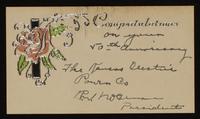 Congratulations
on your
50th anniversary
The Kansas Electric
Power Co
President